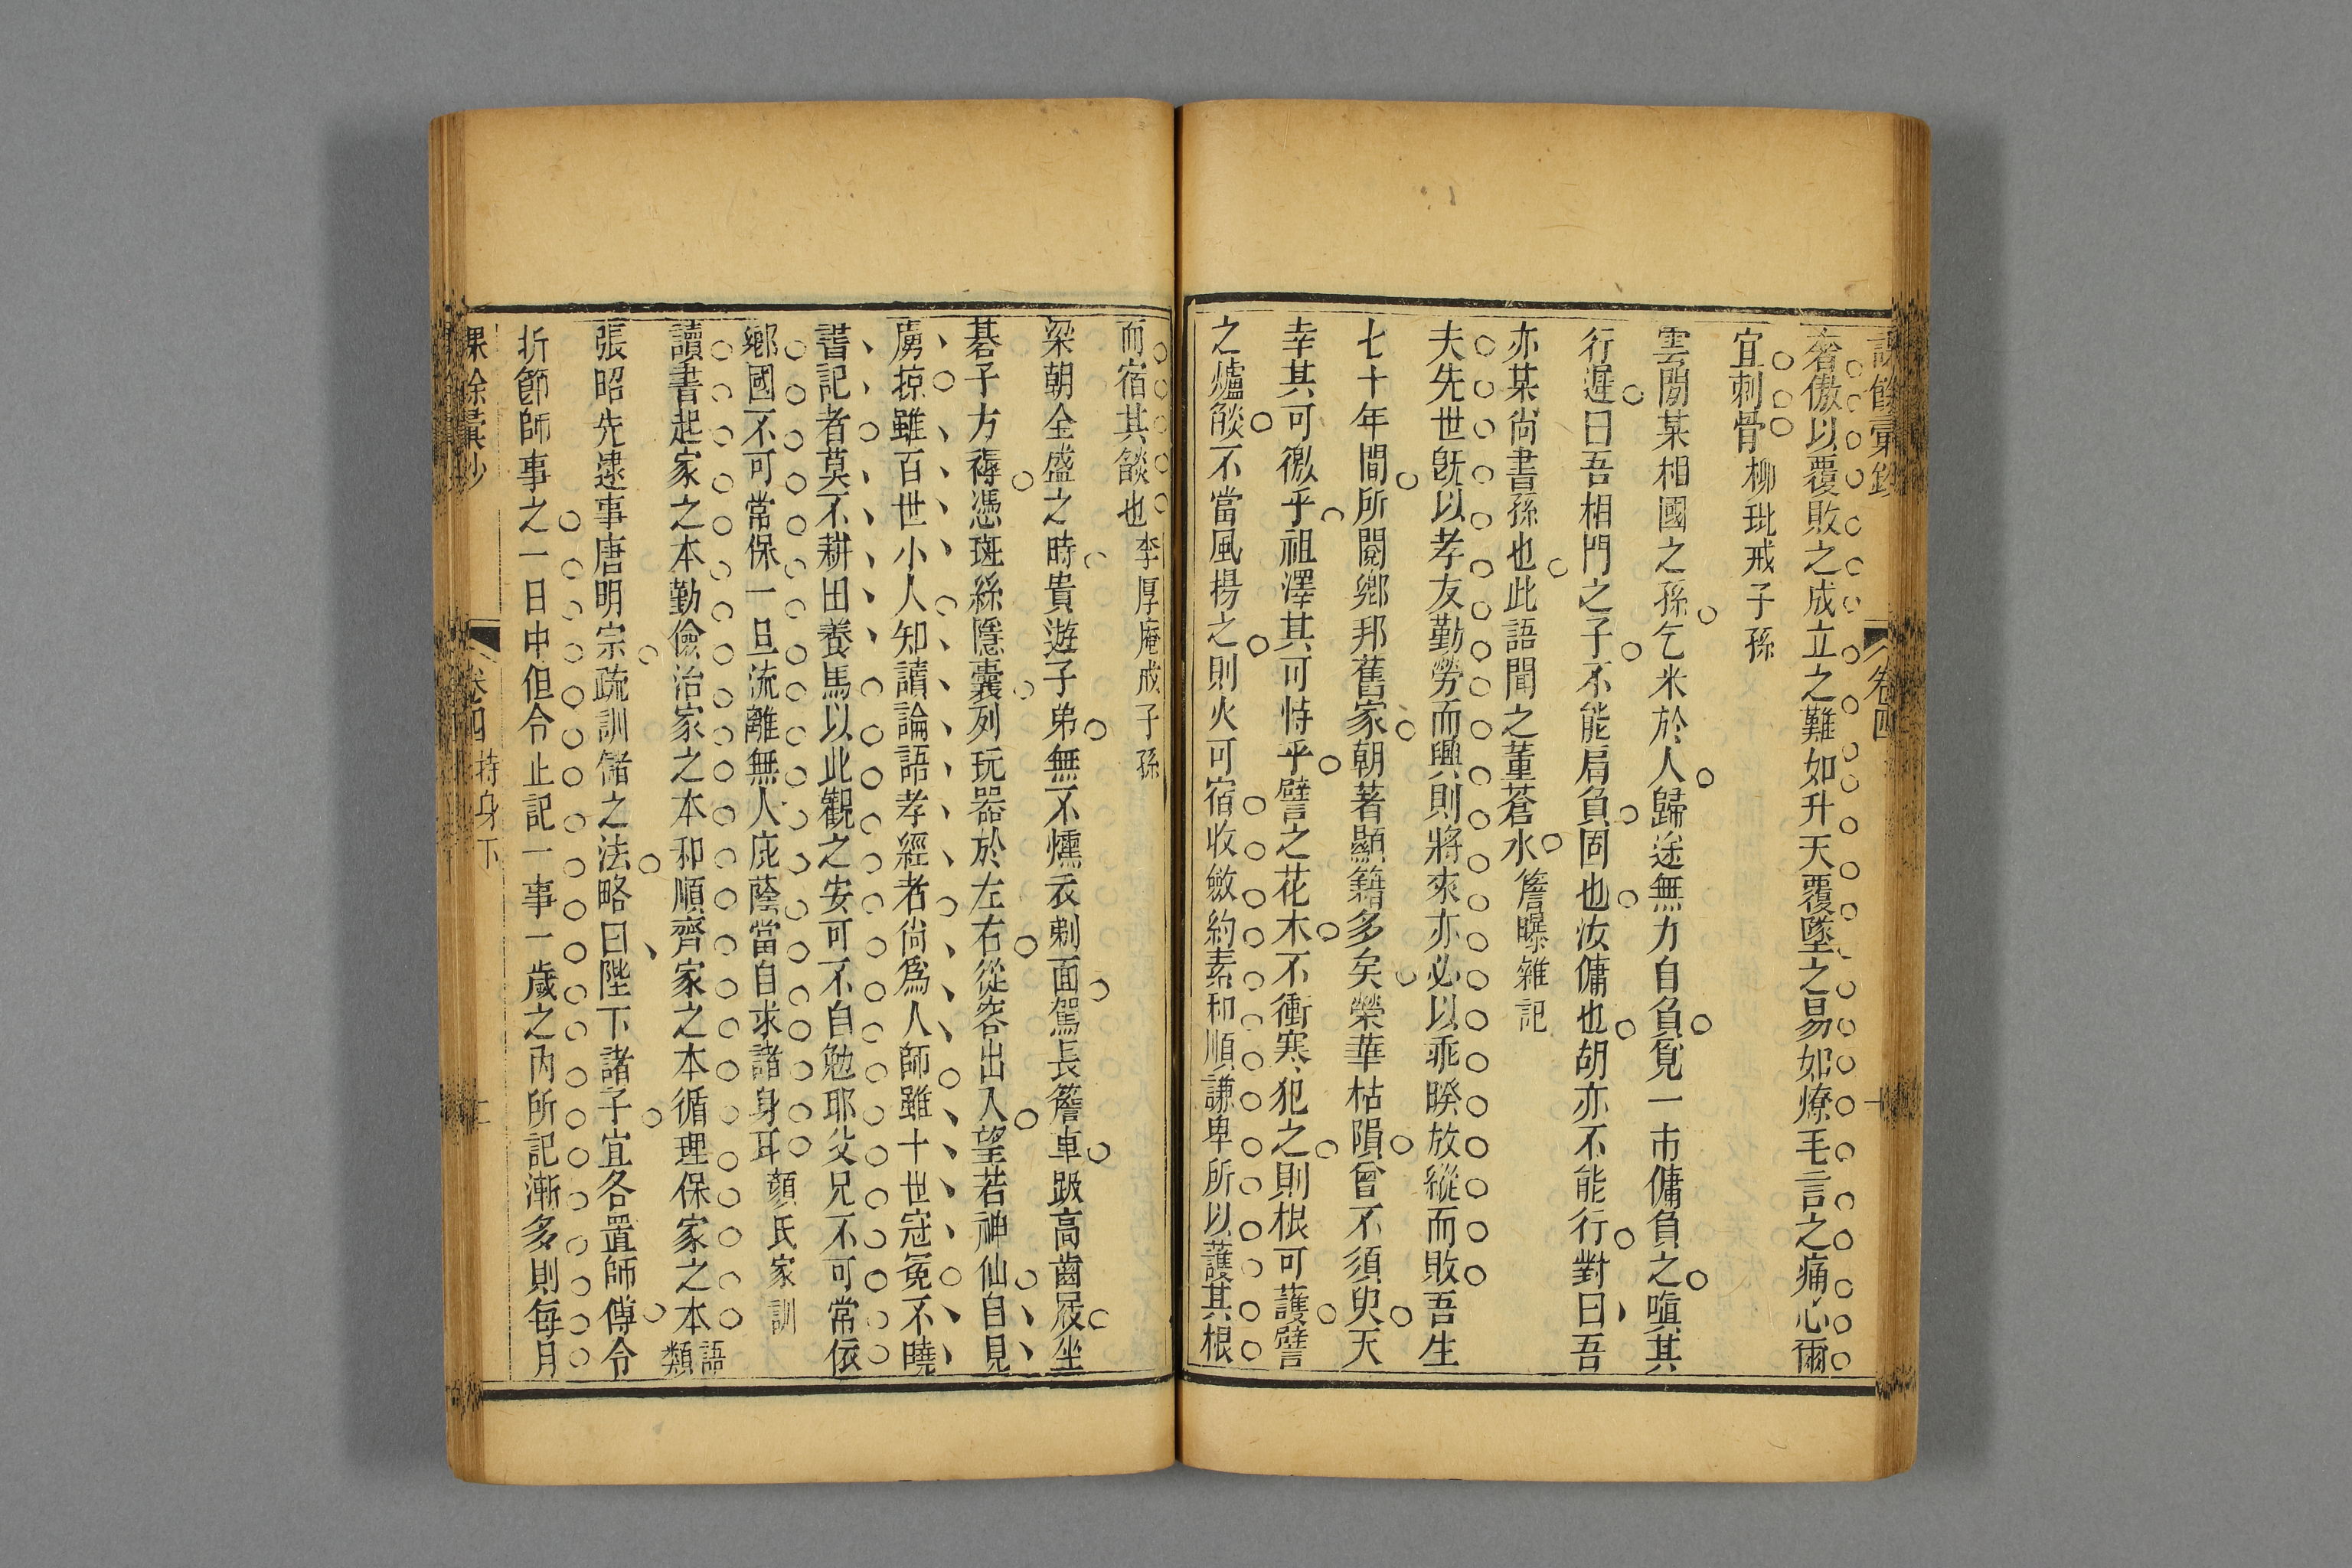 課餘彙鈔 卷四 十
奢傲以覆敗之成立之難如升天覆墜之易如燎毛言之痛心爾
宜刺骨 柳玭戒子孫
雲閒某相國之孫乞米於人歸途無力自負覓一市傭負之嗔其
行遲曰吾相門之子不能肩負固也汝傭也胡亦不能行對曰吾
亦某尚書孫也此語聞之董蒼水 簷曝雜記
夫先世旣以孝友勤勞而興則將來亦必以乖睽放縱而敗吾生
七十年間所閱鄉邦舊家朝著顯籍多矣榮華枯隕曾不須臾天
幸其可徼乎祖澤其可恃乎譬之花木不衝寒犯之則根可護譬
之爐燄不當風揚之則火可宿收斂約素和順謙卑所以護其根
而宿其燄也 李厚庵戒子孫
梁朝全盛之時貴遊子弟無不燻衣剃面駕長簷車跋高齒屐坐
棊子方褥憑斑絲隱囊列玩器於左右從容出入望若神仙自見
虜掠雖百世小人知讀論語孝經者尚爲人師雖十世冠冕不曉
書記者莫不耕田養馬以此觀之安可不自勉耶父兄不可常依
鄉國不可常保一旦流離無人庇蔭當自求諸身耳 顏氏家訓
讀書起家之本勤儉治家之本和順齊家之本循理保家之本 語類
張昭先逮事唐明宗疏訓儲之法略曰陛下諸子宜各置師傅令
折節師事之一日中但令止記一事一歲之內所記漸多則每月
課餘彙鈔 卷四 持身下